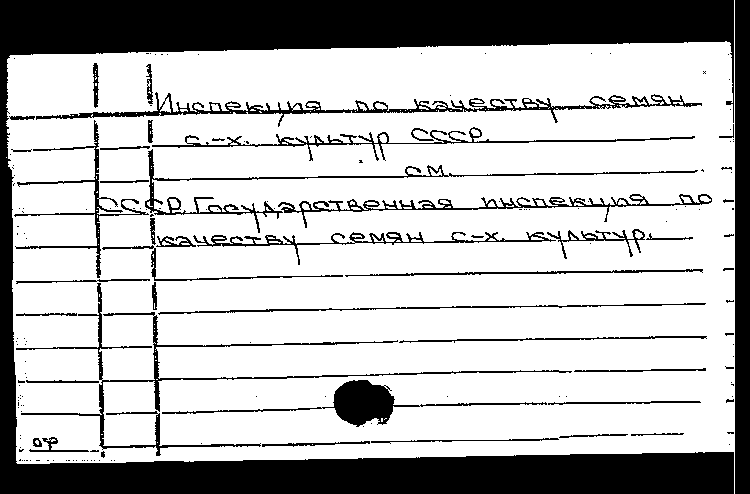 Инспекция по качеству семян
с.-х. культур СССР.
см.
СССР. Государственная инспекция по
качеству семян с-х. культур.
оф